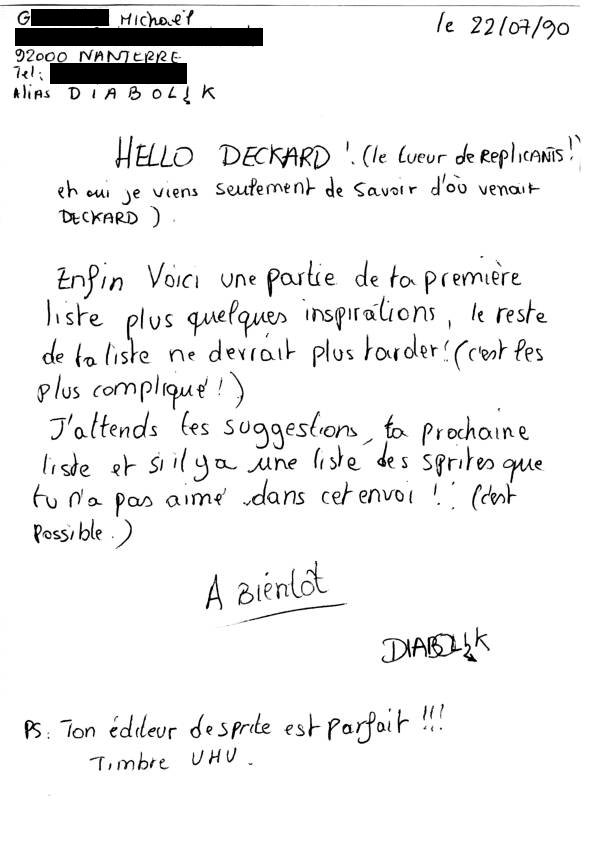 G Michaël
le 22/07/90
92000 NANTERRE
Tel:
Alias DIABOLIK
HELLO DECKARD ! (le tueur de REPLICANTS!
eh oui je viens seulement de savoir d'où venait
DECKARD ).
Enfin Voici une partie de ta première
liste plus quelques inspirations, le reste
de ta liste ne devrait plus tarder! (c'est les
plus compliqué !)
J'attends tes suggestions, ta prochaine
liste et si il y a une liste des sprites que
tu n'a pas aimé dans cet envoi !! (c'est
possible.)
A Bientôt
DIABOLIK
PS: Ton éditeur de sprite est parfait !!!
Timbre UHU.